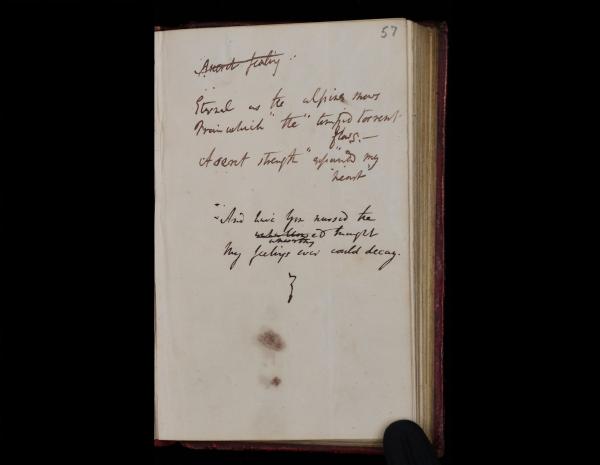 57
feeling
Eternal as the alpine snows
From which "the" torrent
flows.—
A secret strength my
heart
And have you nursed the
thought
My feelings ever could decay.